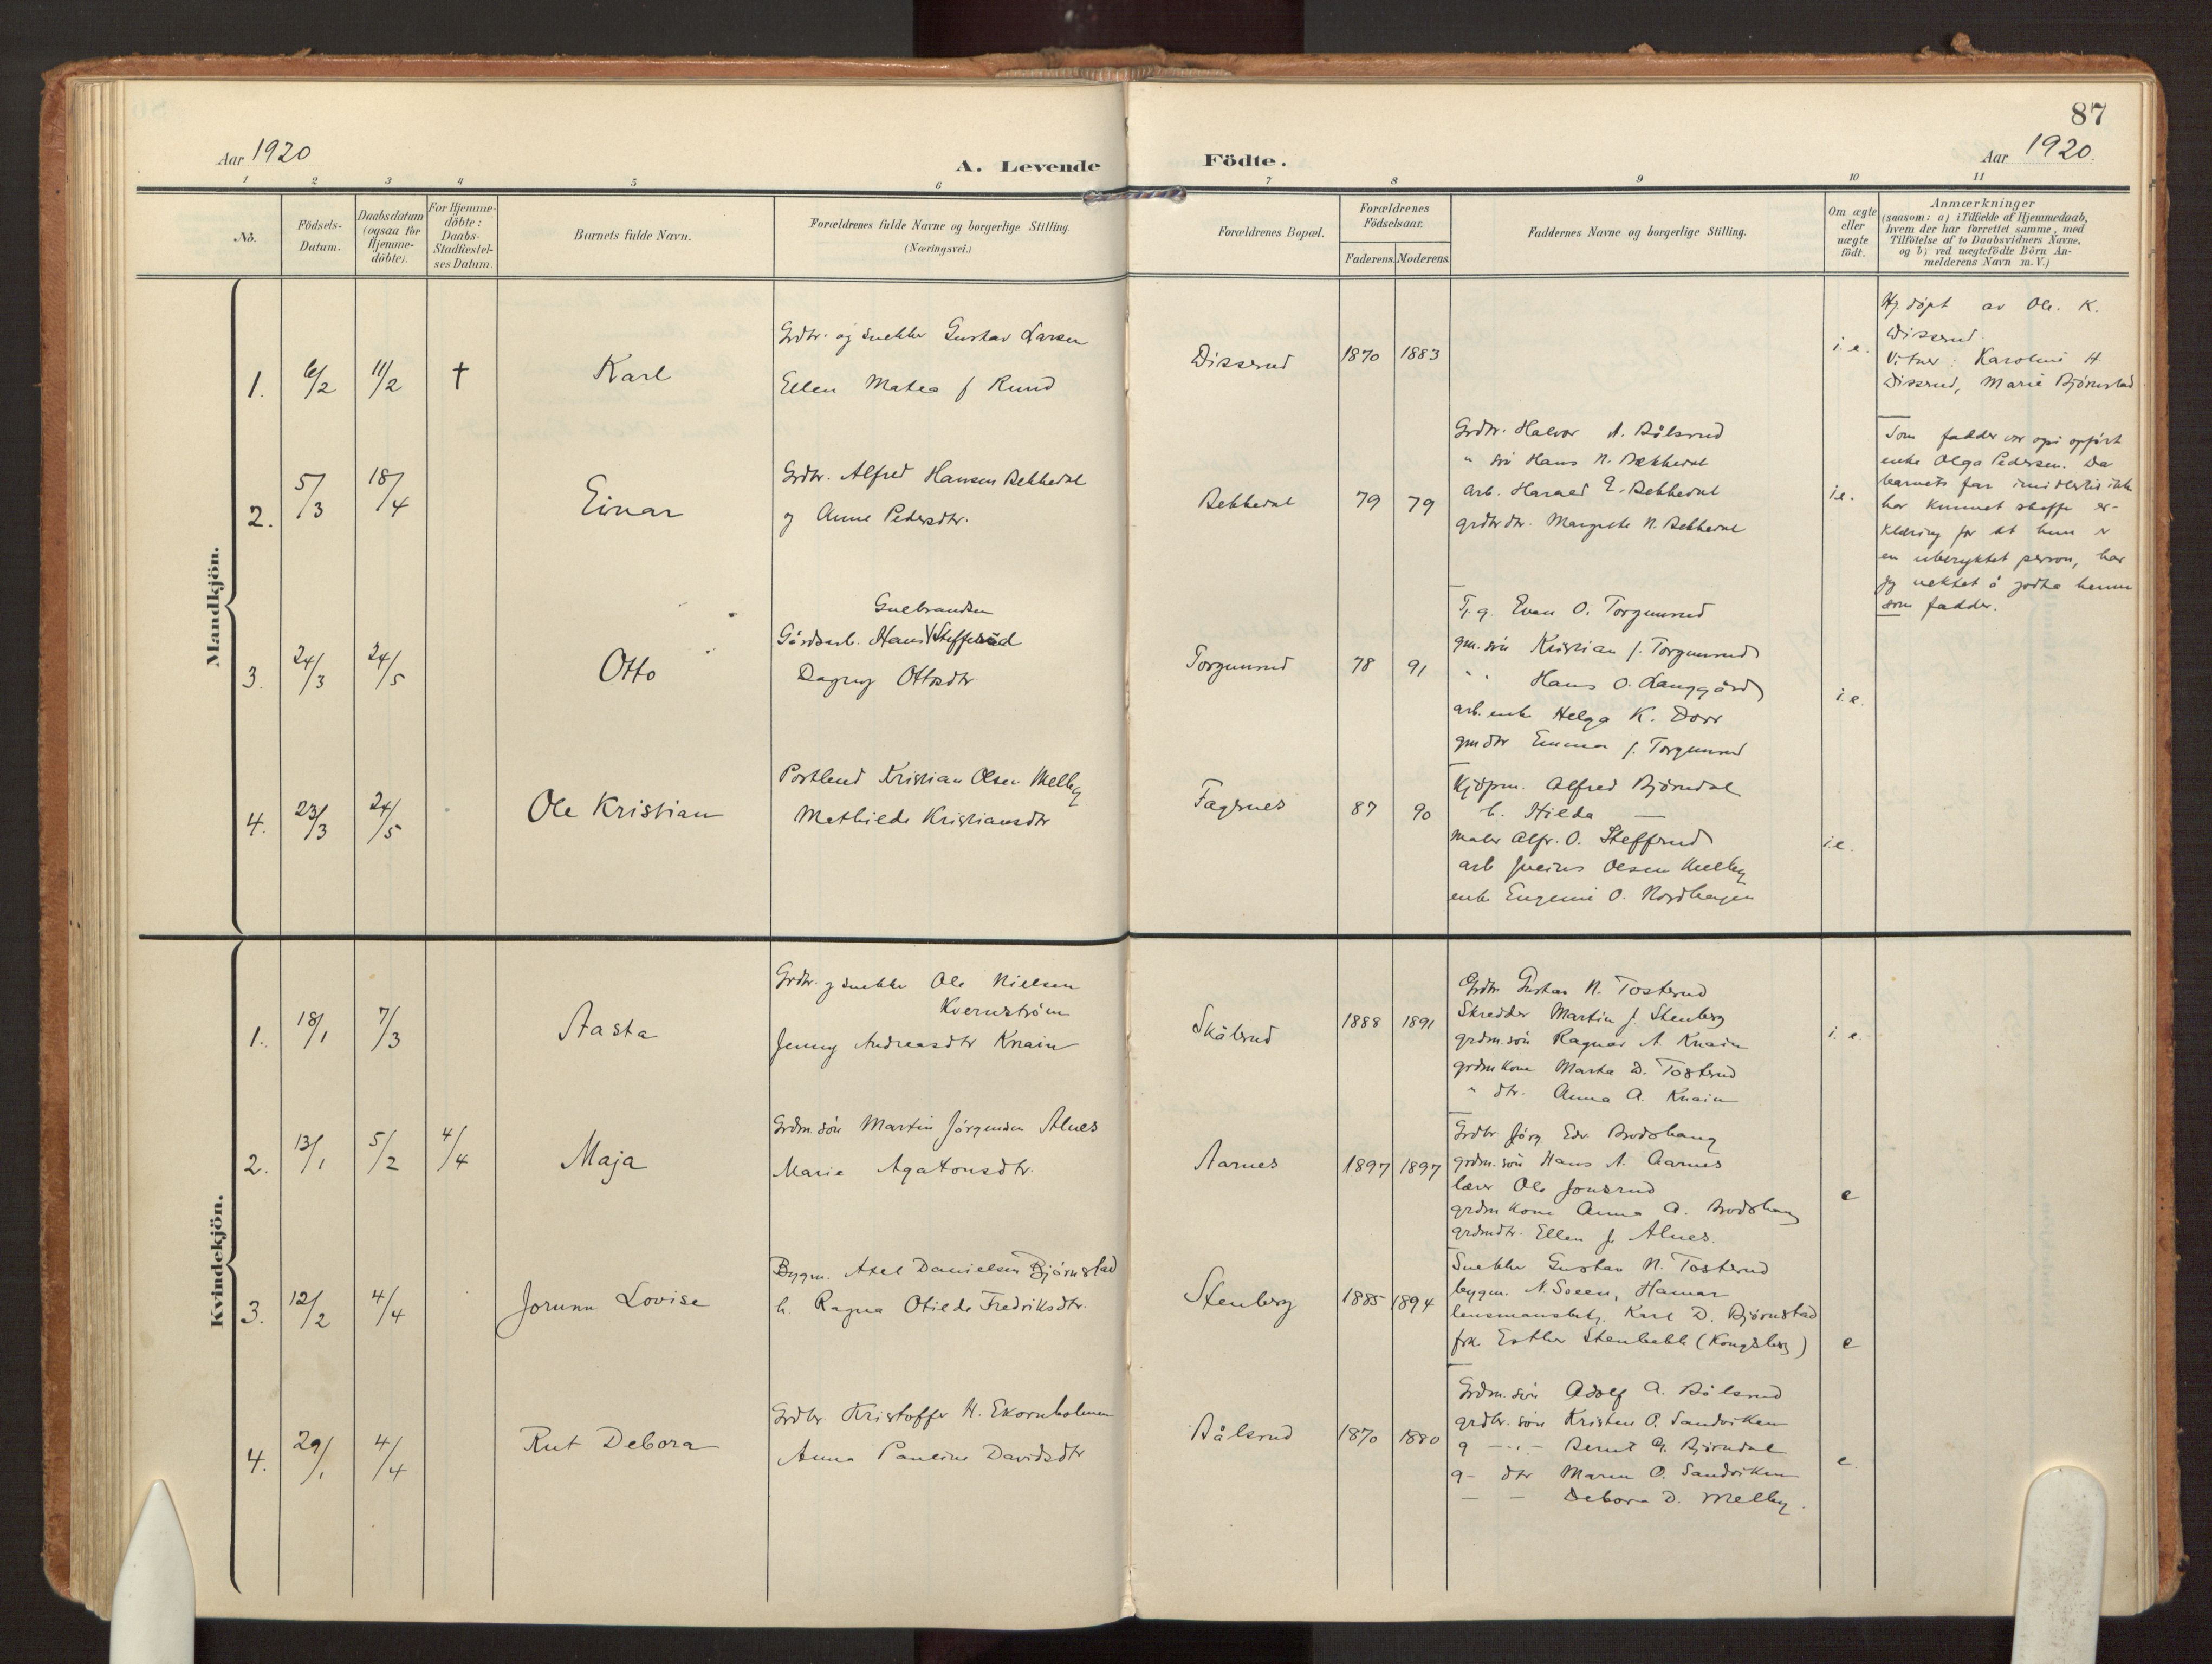 87
Aar 1920
A. Levende Födte.
Aar 1920.
1 2 3 4 5 6 7 8 9 10 11
No.
Födsels-
Datum.
Daabsdatum
(ogsaa for
Hjemme-
döbte).
For Hjemme-
döbte:
Daabs-
Stadfæstel-
ses Datum.
Barnets fulde Navn.
Forældrenes fulde Navne og borgerlige Stilling.
(Næringsvei.)
Forældrenes Bopæl.
Forældrenes
Födselsaar.
Faderens. Moderens.
Faddernes Navne og borgerlige Stilling.
Om ægte
eller
uægte
födt.
Anmærkninger
(saasom: a) i Tilfælde af Hjemmedaab,
hvem der har forrettet samme, med
Tilföielse af to Daabsvidners Navne,
og b) ved uægtefödte Börn An-
melderens Navn m. V.)
Mandkjön.
1. 6/2 11/2 † Karl
Grdbr. og snekker Gustav Larsen
Ellen Matea f Rund
Disserud 1870 1883
i.e.
Hj.døpt av Ole K.
Disserud.
Vitner: Karoline H.
Disserud, Marie Bjørnstad
2. 5/3 18/4 Einar
Grdbr. Alfred Hansen Bekkedal
og Anne Pedersdtr.
Bekkedal 79 79
Grdbr. Halvor A. Bålsrud
" søn Hans N. Bekkedal
arb. Harald E. Bekkedal
grdbr dtr. Margrethe N. Bekkedal
i.e.
Som fadder var opført
enke Olga Pedersen. Da
barnets far imidlertid ikke
har kunnet skaffe er-
klæring for at hun er
en uberyktet person, har
jeg nektet å godta henne
som fadder.
3. 24/3 24/5 Otto
Gulbrandsen
Gårdsarb. Hans Steffensrud
Dagny Ottosdtr
Torgunrud 78 91
Evan O. Torgunrud
gm. søn Kristian J. Torgunrud
" " Hans O. Langgård
arb. enke Helga K. Dorr
gm dtr Emma J. Torgunrud
i.e.
4. 23/3 24/5 Ole Kristian
Postbud Kristian Olsen Melby
Mathilde Kristiansdtr
Fagernes 87 90
Kjöpm. Alfred Bjørndal
h. Hilda —
maler Alfr. O. Steffrud
arb Julius Olsen Melby
enke Eugenie O. Nordhagen
i.e.
Kvindekjön.
1. 18/1 7/3 Aasta
Grdbr. og snekker Ole Nielsen
Kvernstrøm
Jenny Andreasdtr Knain
Skålerud 1888 1891
Grdbr Gustav N. Tosterud
Skredder Martin J. Stenberg
grdm.søn Ragnar A. Knain
grdm kone Marta D. Tosterud
" dtr. Anna A. Knain
i. e.
2. 13/1 5/2 4/4 Maja
Grdm. søn Martin Jörgensen Alnes
Marie Agatonsdtr.
Aarnes 1897 1897
Grdbr Jörg. Edv. Brodshaug
grdm. søn Hans A. Aarnes
lærer Ole Jonsrud
grdm kone Anna A. Brodshaug
grdmdtr. Ellen J. Alnes.
e
3. 12/2 4/4 Jorunn Lovise
Bygm. Axel Danielsen Bjørnstad
h. Ragna Otilde Fredriksdtr.
Stenberg 1885 1894
Snekker Gustav N. Tosterud
bygm. N. Soeen, Hamar
lensmansbetj. Karl D. Bjørnstad
frk. Esther Stenbekk (Kongsberg)
e
4. 29/1 4/4 Rut Debora
Grdbr. Kristoffer H. Ekornholmen
Anna Pauline Davidsdtr
Bålsrud 1870 1880
Grdm. søn Adolf A. Bålsrud
grdbr. søn Kristen O. Sandviken
g —"— Bernt G. Bjørndal
g- dtr Maren O. Sandviken
— — Debora D. Melby.
e.